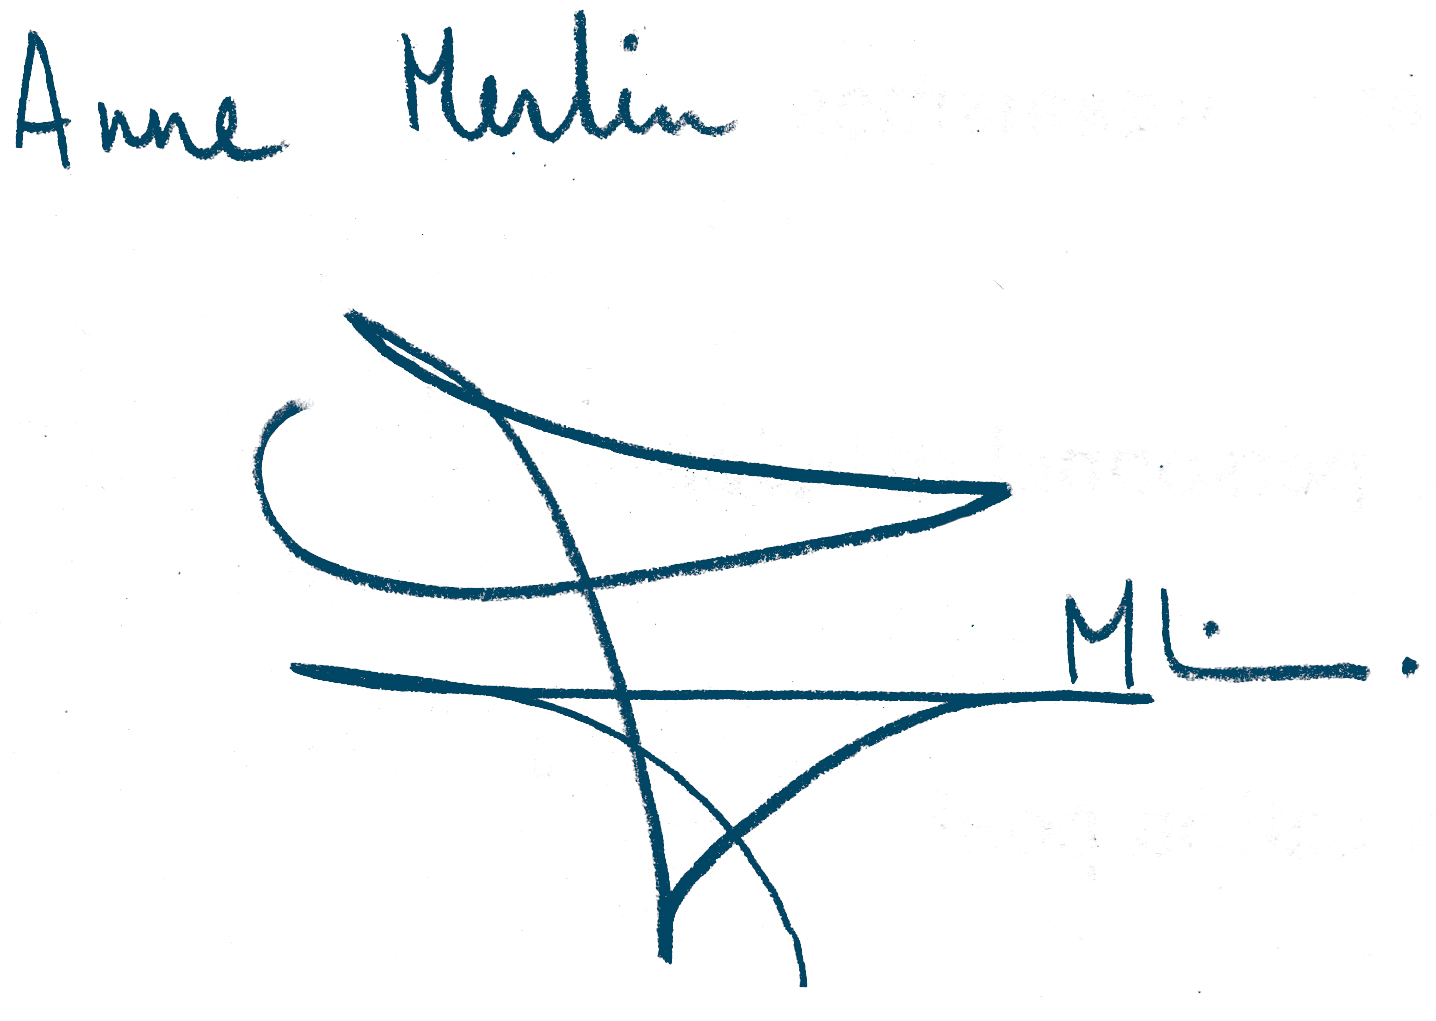 Anne Merlin
Mli.